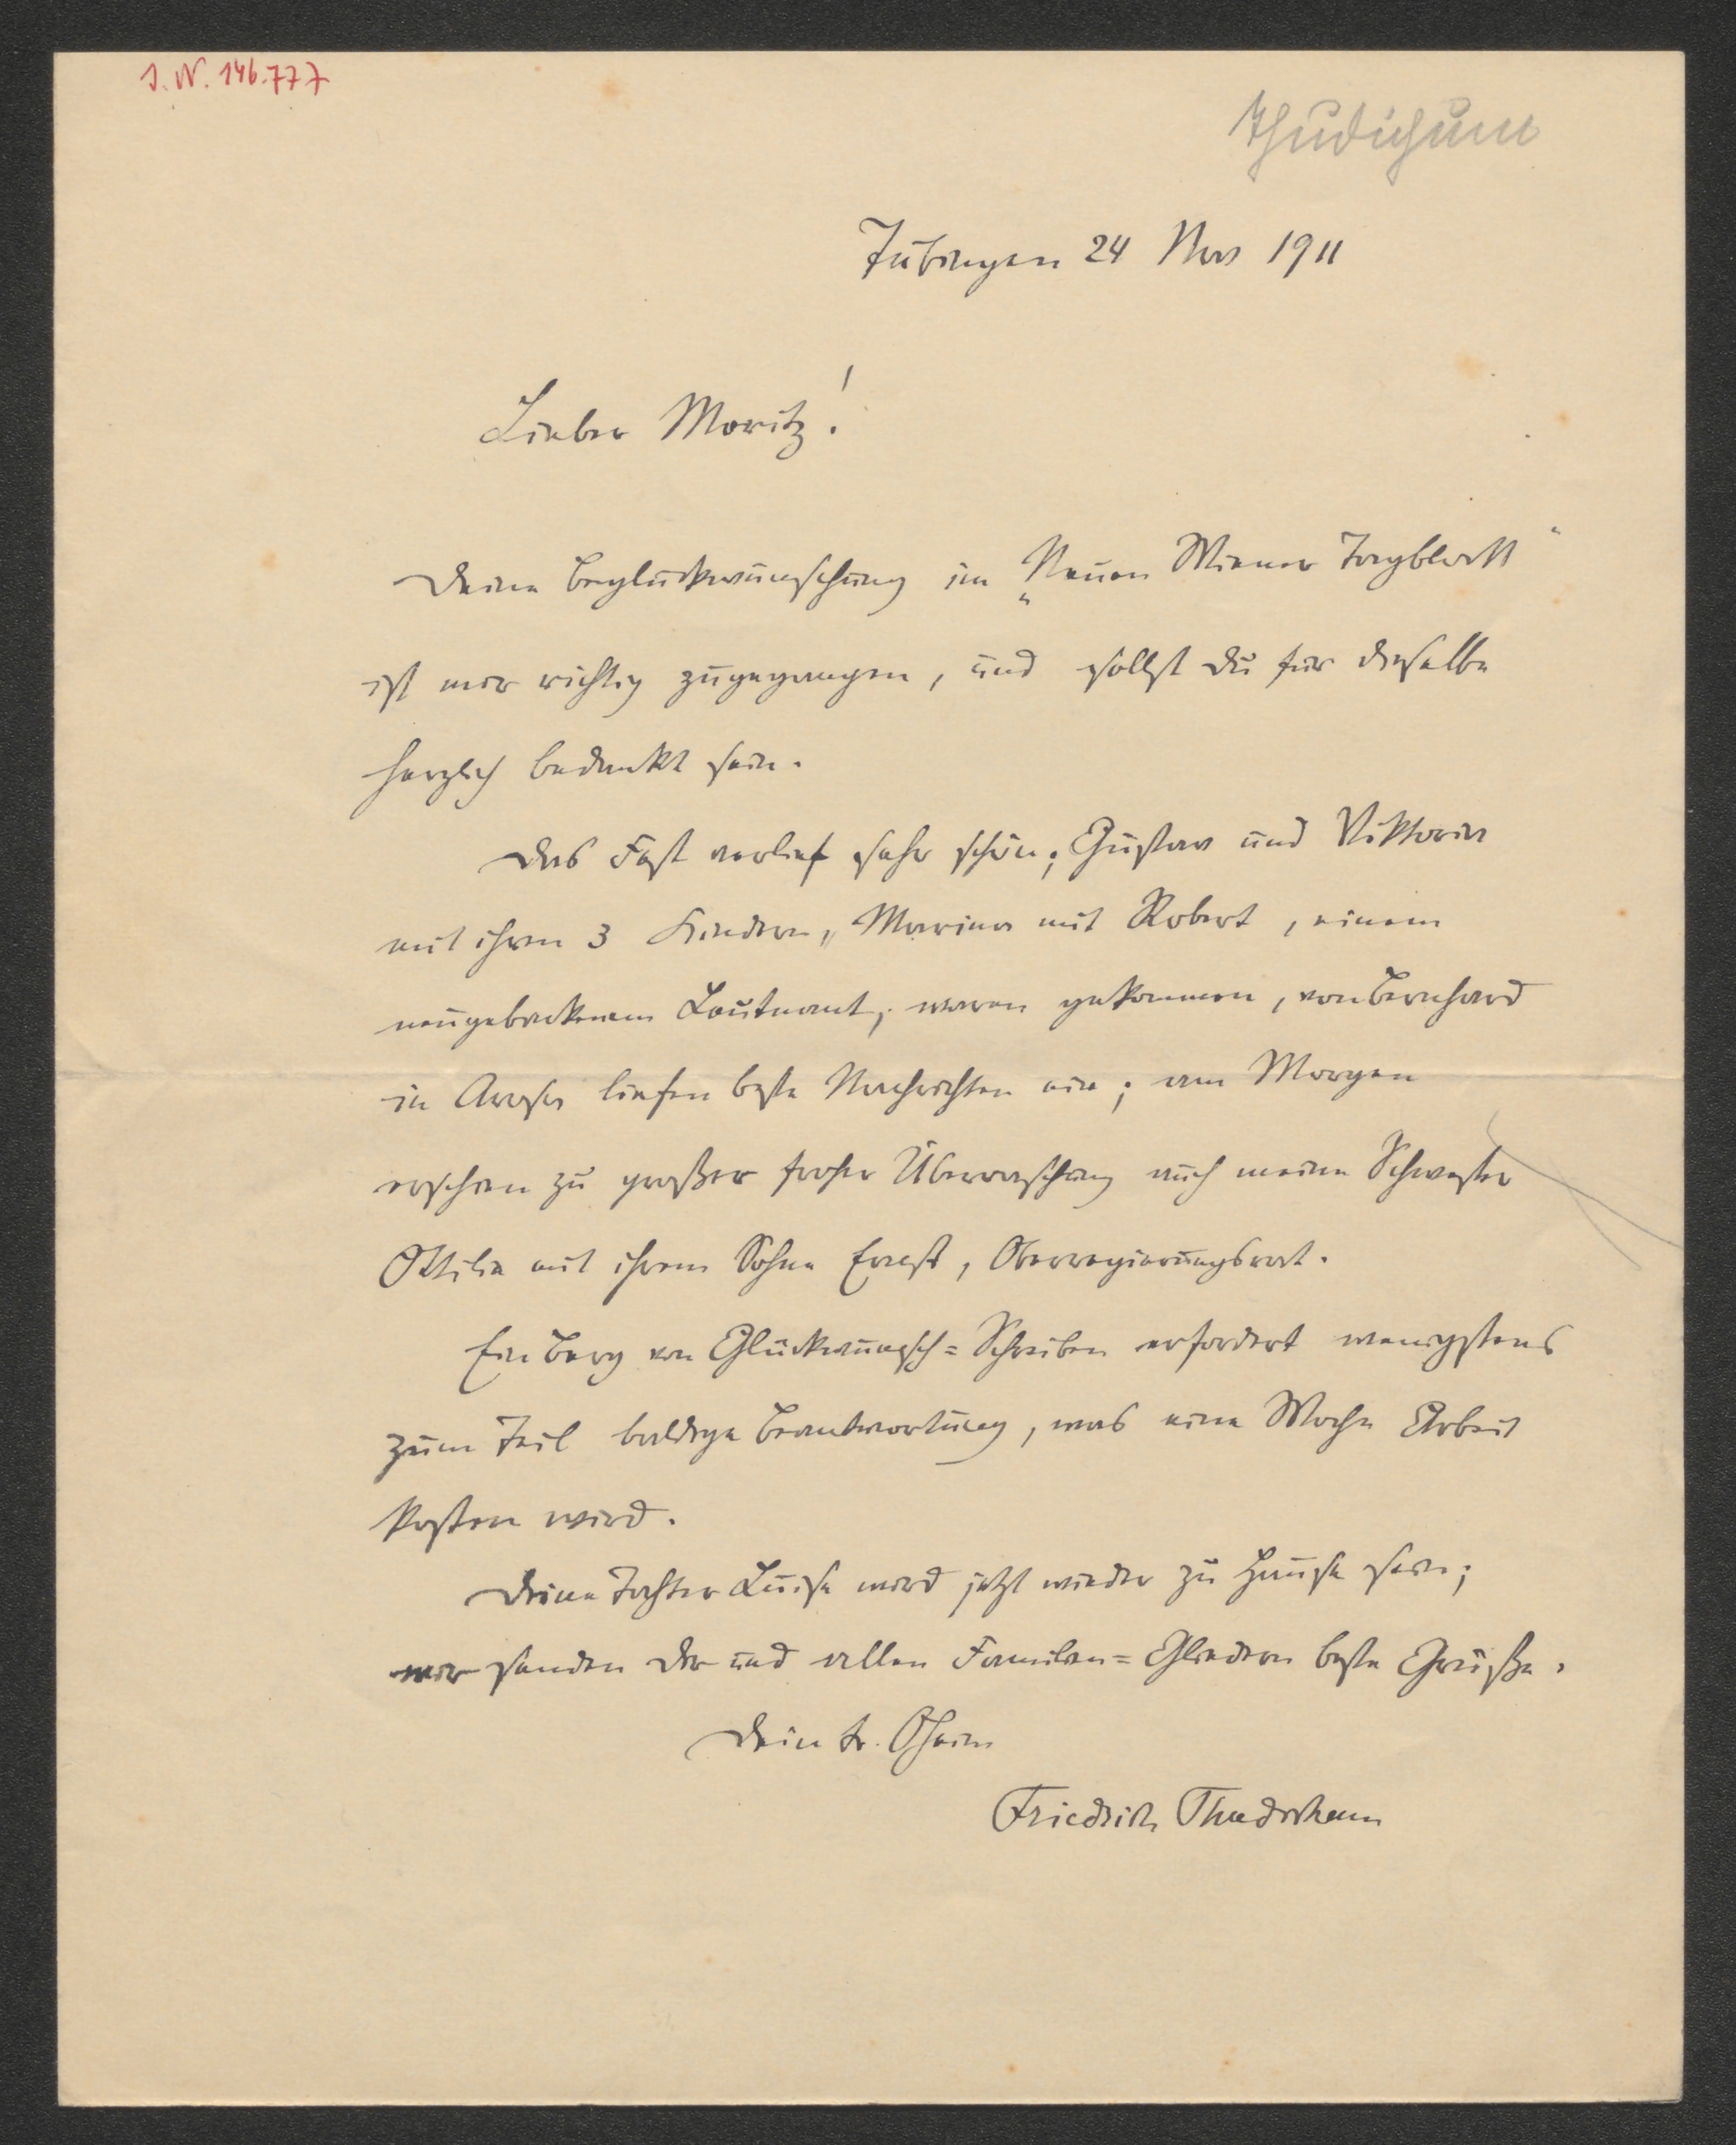 J. N. 146.777
Thudichum
Tübingen 24 Nov 1911
Lieber Moritz!
Deine Beglückwünschung im „Neuen Wiener Tagblatt"
ist mir richtig zugegangen, und sollst Du für dieselbe
herzlich bedankt sein.
Das Fest verlief sehr schön; Gustav und Viktoria
mit ihren 3 Kindern, Marina mit Robert, einem
neugebackenem Leutnant, waren gekommen, von Bernhard
in Arosa liefen beste Nachrichten ein; am Morgen
erschien zu großer froher Überraschung auch meine Schwester
Ottilie mit ihrem Sohne Ernst, Oberregierungsrat.
Ein Berg von Glückwunsch=Schreiben erfordert wenigstens
zum Teil baldige Beantwortung, was eine Woche Arbeit
kosten wird.
Deine Tochter Luise wird jetzt wieder zu Hause sein;
wir senden Dir und allen Familien=Gliedern beste Grüße.
Dein tr. Oheim
Friedrich Thudichum